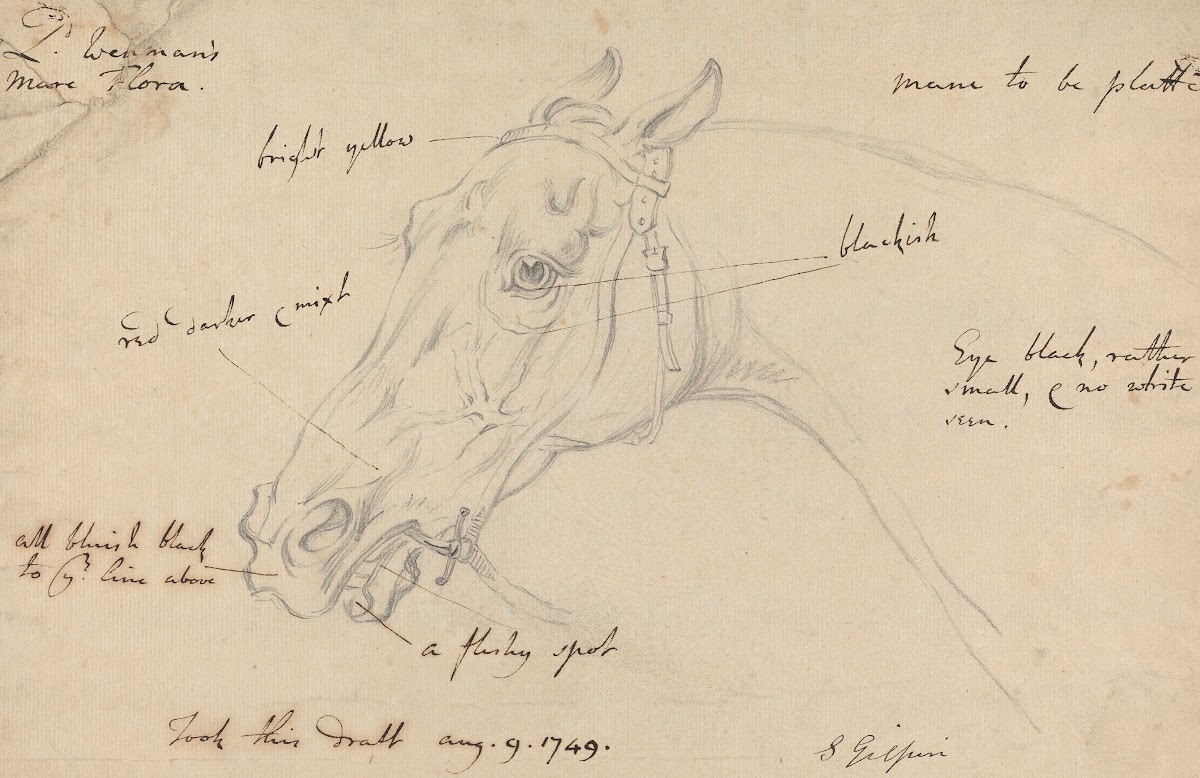 Ld. Wenman's
Mare Flora.
mane to be platt
bright yellow
blackish
red darker & mixt
Eye black, rather
small, & no white
seen.
all bluish black
to ye. line above
a fleshy spot
Took this dratt aug. 9. 1749.
S Gilpin